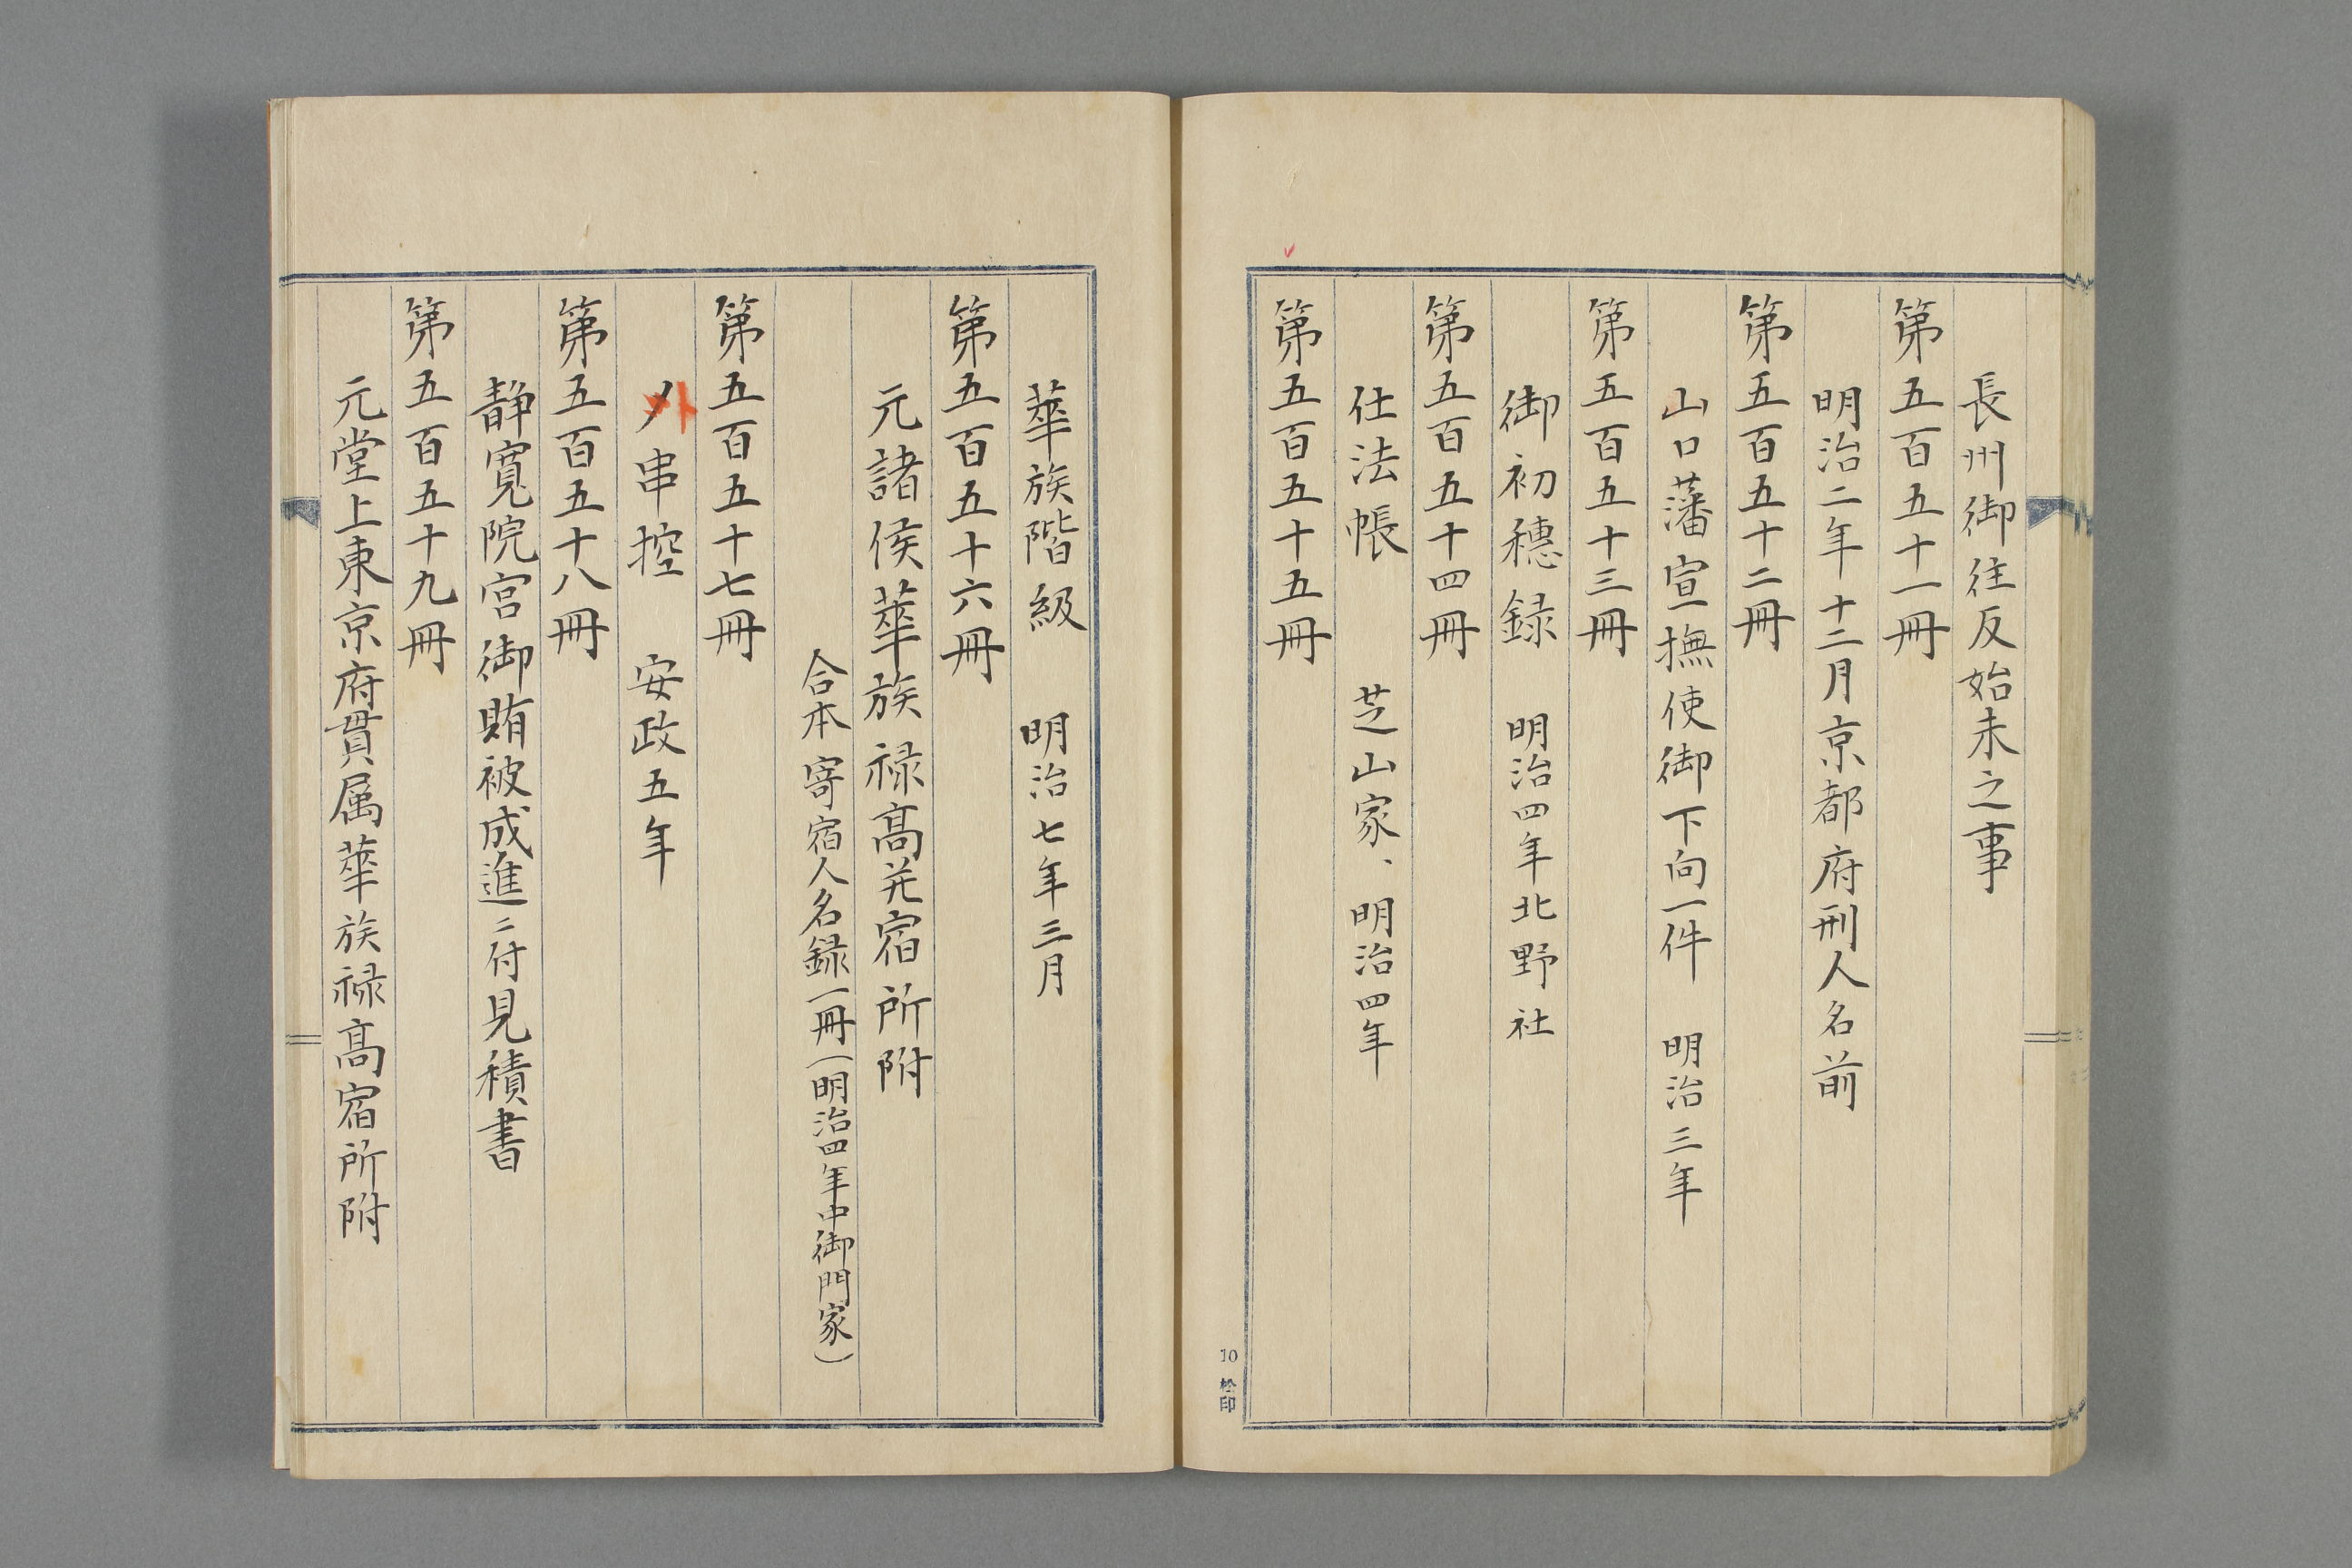 長州御往反始末之事
第五百五十一冊
明治二年十二月京都府刑人名前
第五百五十二冊
山口藩宣撫使御下向一件 明治三年
第五百五十三冊
御初穗録 明治四年北野社
第五百五十四冊
仕法帳 芝山家、明治四年
第五百五十五冊
10 松印
華族階級 明治七年三月
第五百五十六冊
元諸侯華族禄高并宿所附
合本 寄宿人名録一冊(明治四年中御門家)
第五百五十七冊
外串控 安政五年
第五百五十八冊
静寛院宮御賄被成進ニ付見積書
第五百五十九冊
元堂上東京府貫属華族禄高宿所附